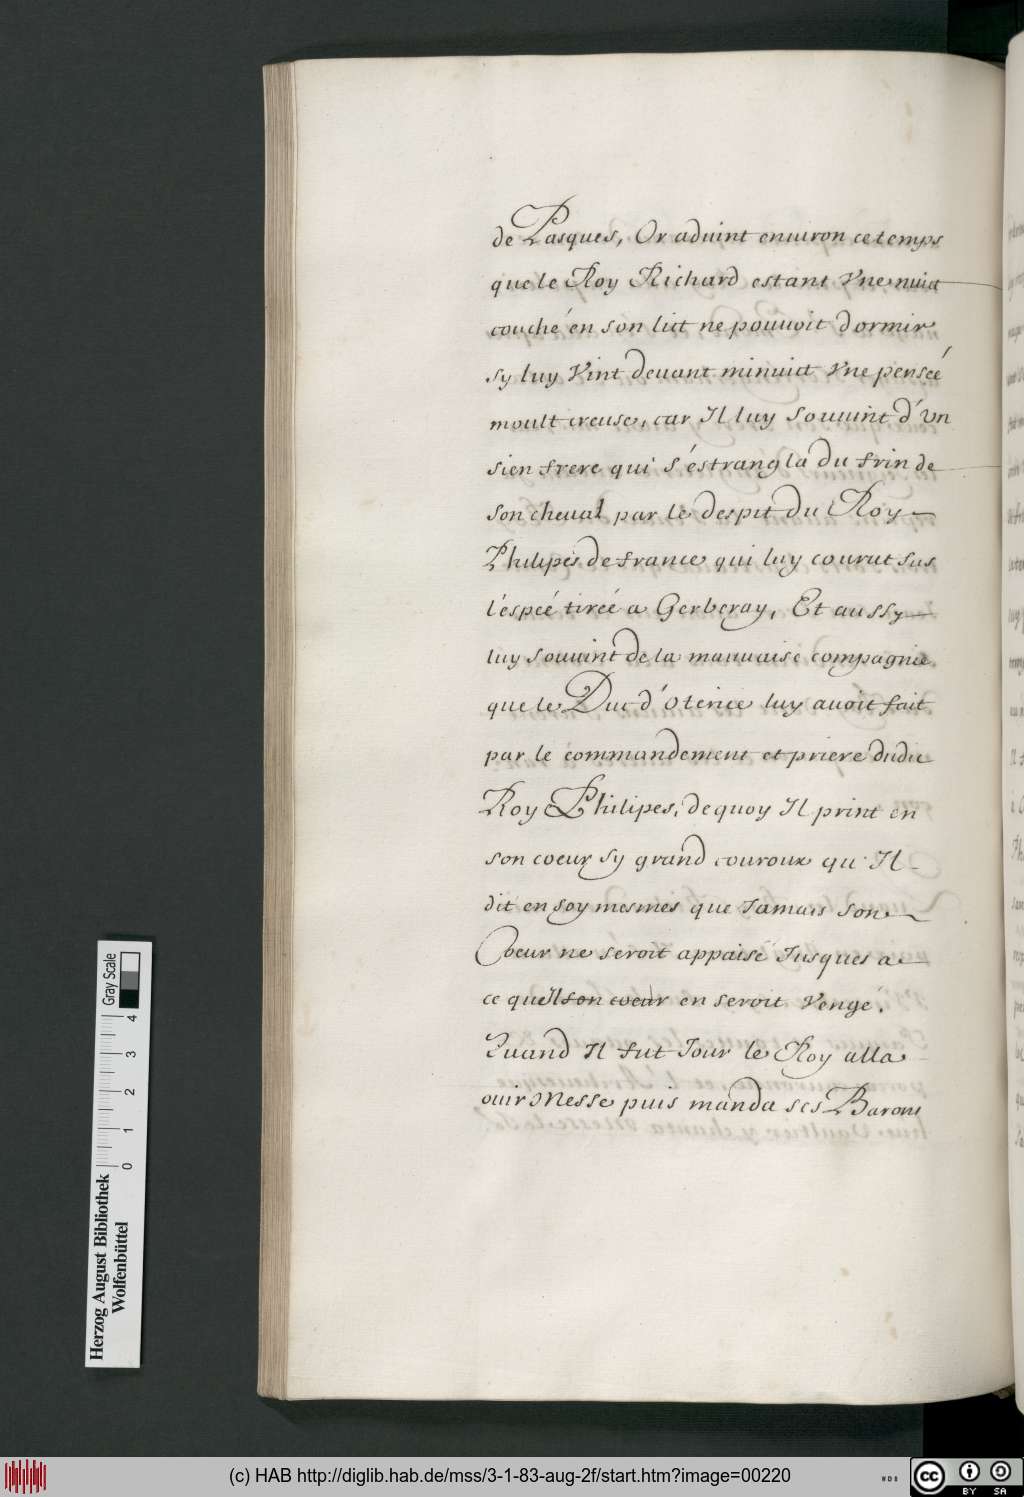 de Pasques, Or aduint enuiron ce temps
que le Roy Richard estant Vne nuict
couché en son lict ne pouuoit dormir
sy luy Vint deuant minuict Vne penseé
moult creuse, car Il luy souuint d'Vn
sien frere qui s'éstrangla du frin de
son cheual par le despit du Roy
Philipes de france qui luy courut sus
l'éspeé tireé a Gerberay, Et aussy
luy souuint de la mauuaise compagnie
que le Duc d'Oteriee luy auoit fait
par le commandement et priere dudit
Roy Philipes, de quoy Il print en
son coeur sy grand couroux qu'Il
dit en soy mesmes que Jamais son
Coeur ne seroit appaisé Jusques a
ce qu'il son coeur en seroit Vengé.
Quand Il fut Jour le Roy alla
ouir Messe puis manda ses Barons
Herzog August Bibliothek
Wolfenbüttel
Gray Scale
0 1 2 3 4
(c) HAB http://diglib.hab.de/mss/3-1-83-aug-2f/start.htm?image=00220
WDB
cc BY SA